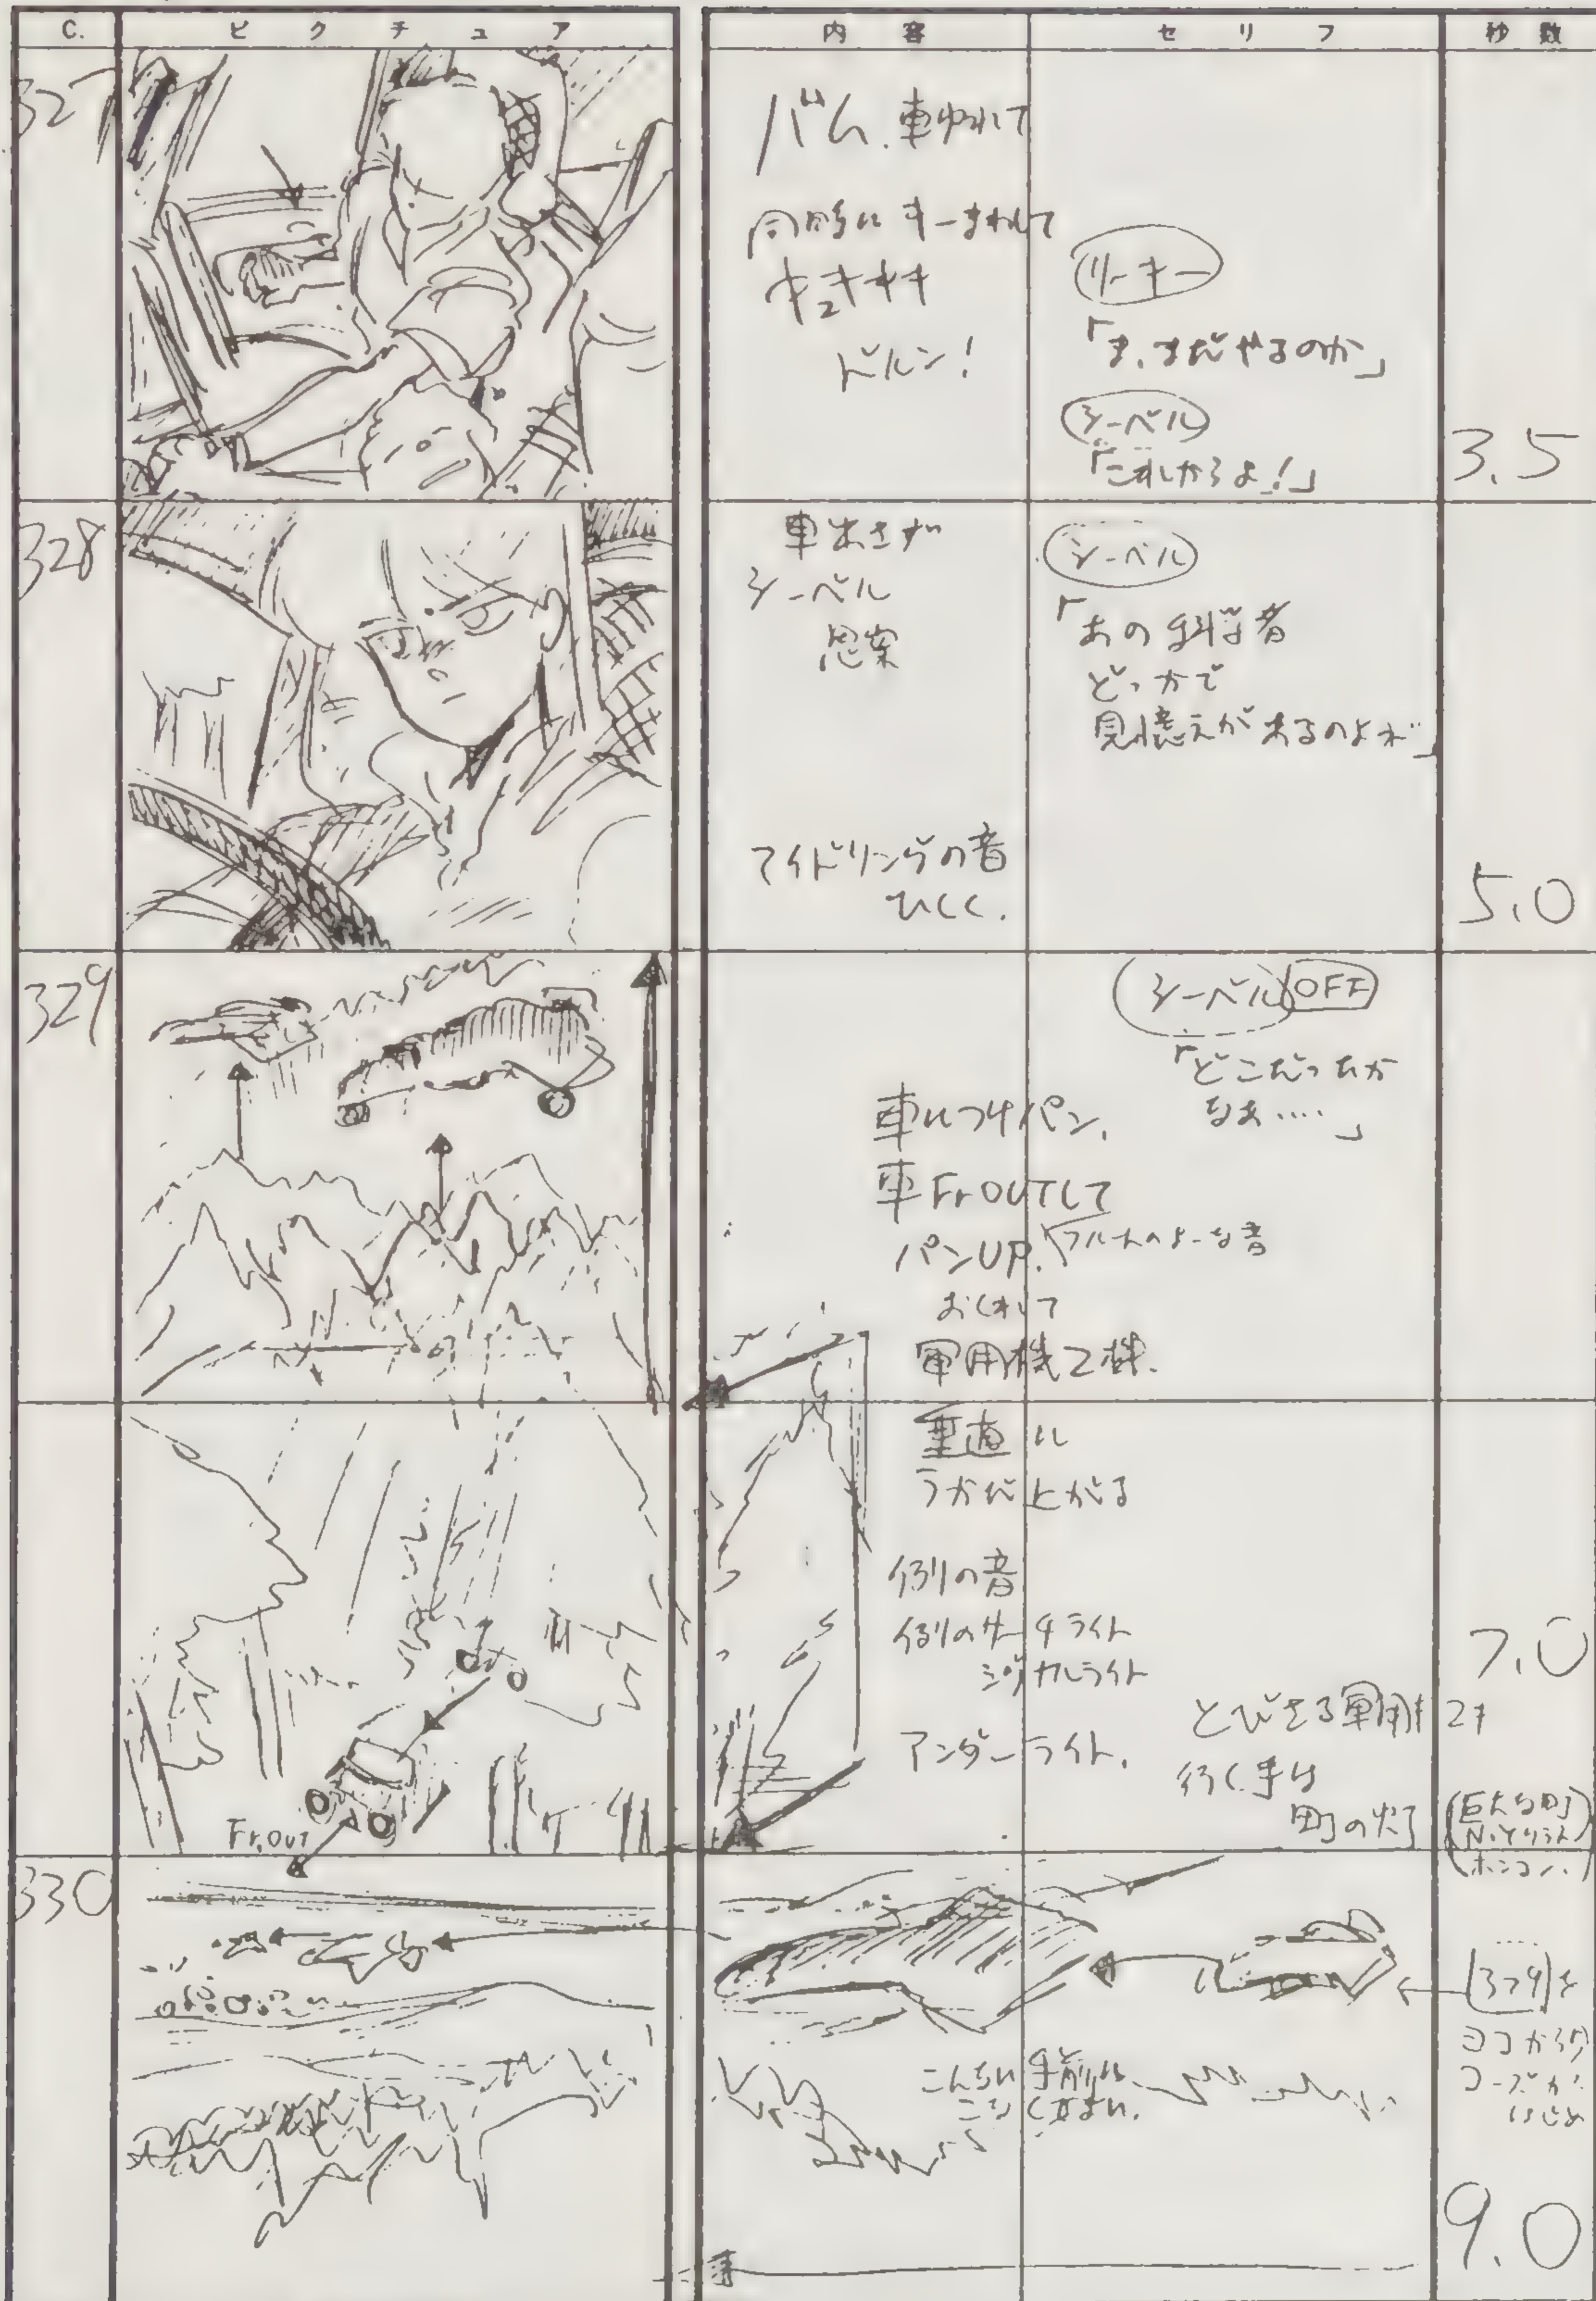 C.
ピクチュア
内容
セリフ
秒数
327
バム、車ゆれて
同時にキーまわして
キュキキキ
ドルン!
リーキー
「ま、まだやるのか」
シーベル
「これからよ!」
3.5
328
車出さず
シーベル
思案
アイドリングの音
ひくく.
シーベル
「あの科学者
どっかで
見憶えがあるのよネ」
5.0
329
シーベル OFF
「どこだったか
なあ‥‥」
車につけパン、
車Fr OUTして
パンUP.
フルートのような音
おくれて
軍用機2機.
垂直に
うかび上がる
例の音
例のサーチライト
シグナルライト
アンダーライト.
Fr.OUT
7.0
とびさる軍用キ2キ
行く手は
町の灯
巨大な町
ホンコン.
330
329を
ココから
こんなに手前に
こなくがよい.
9.0